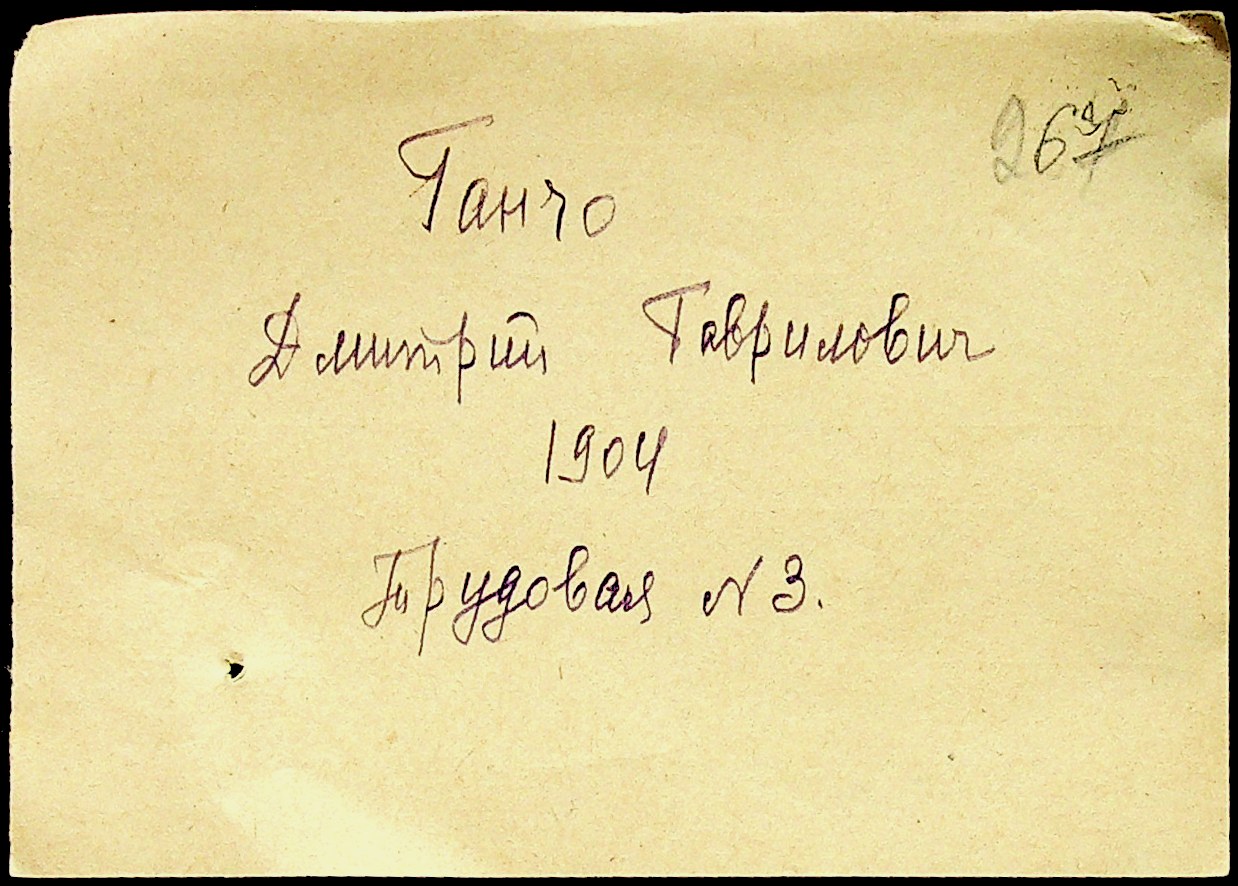 Ганчо
Дмитрий Гаврилович
1904
Трудовая N 3.